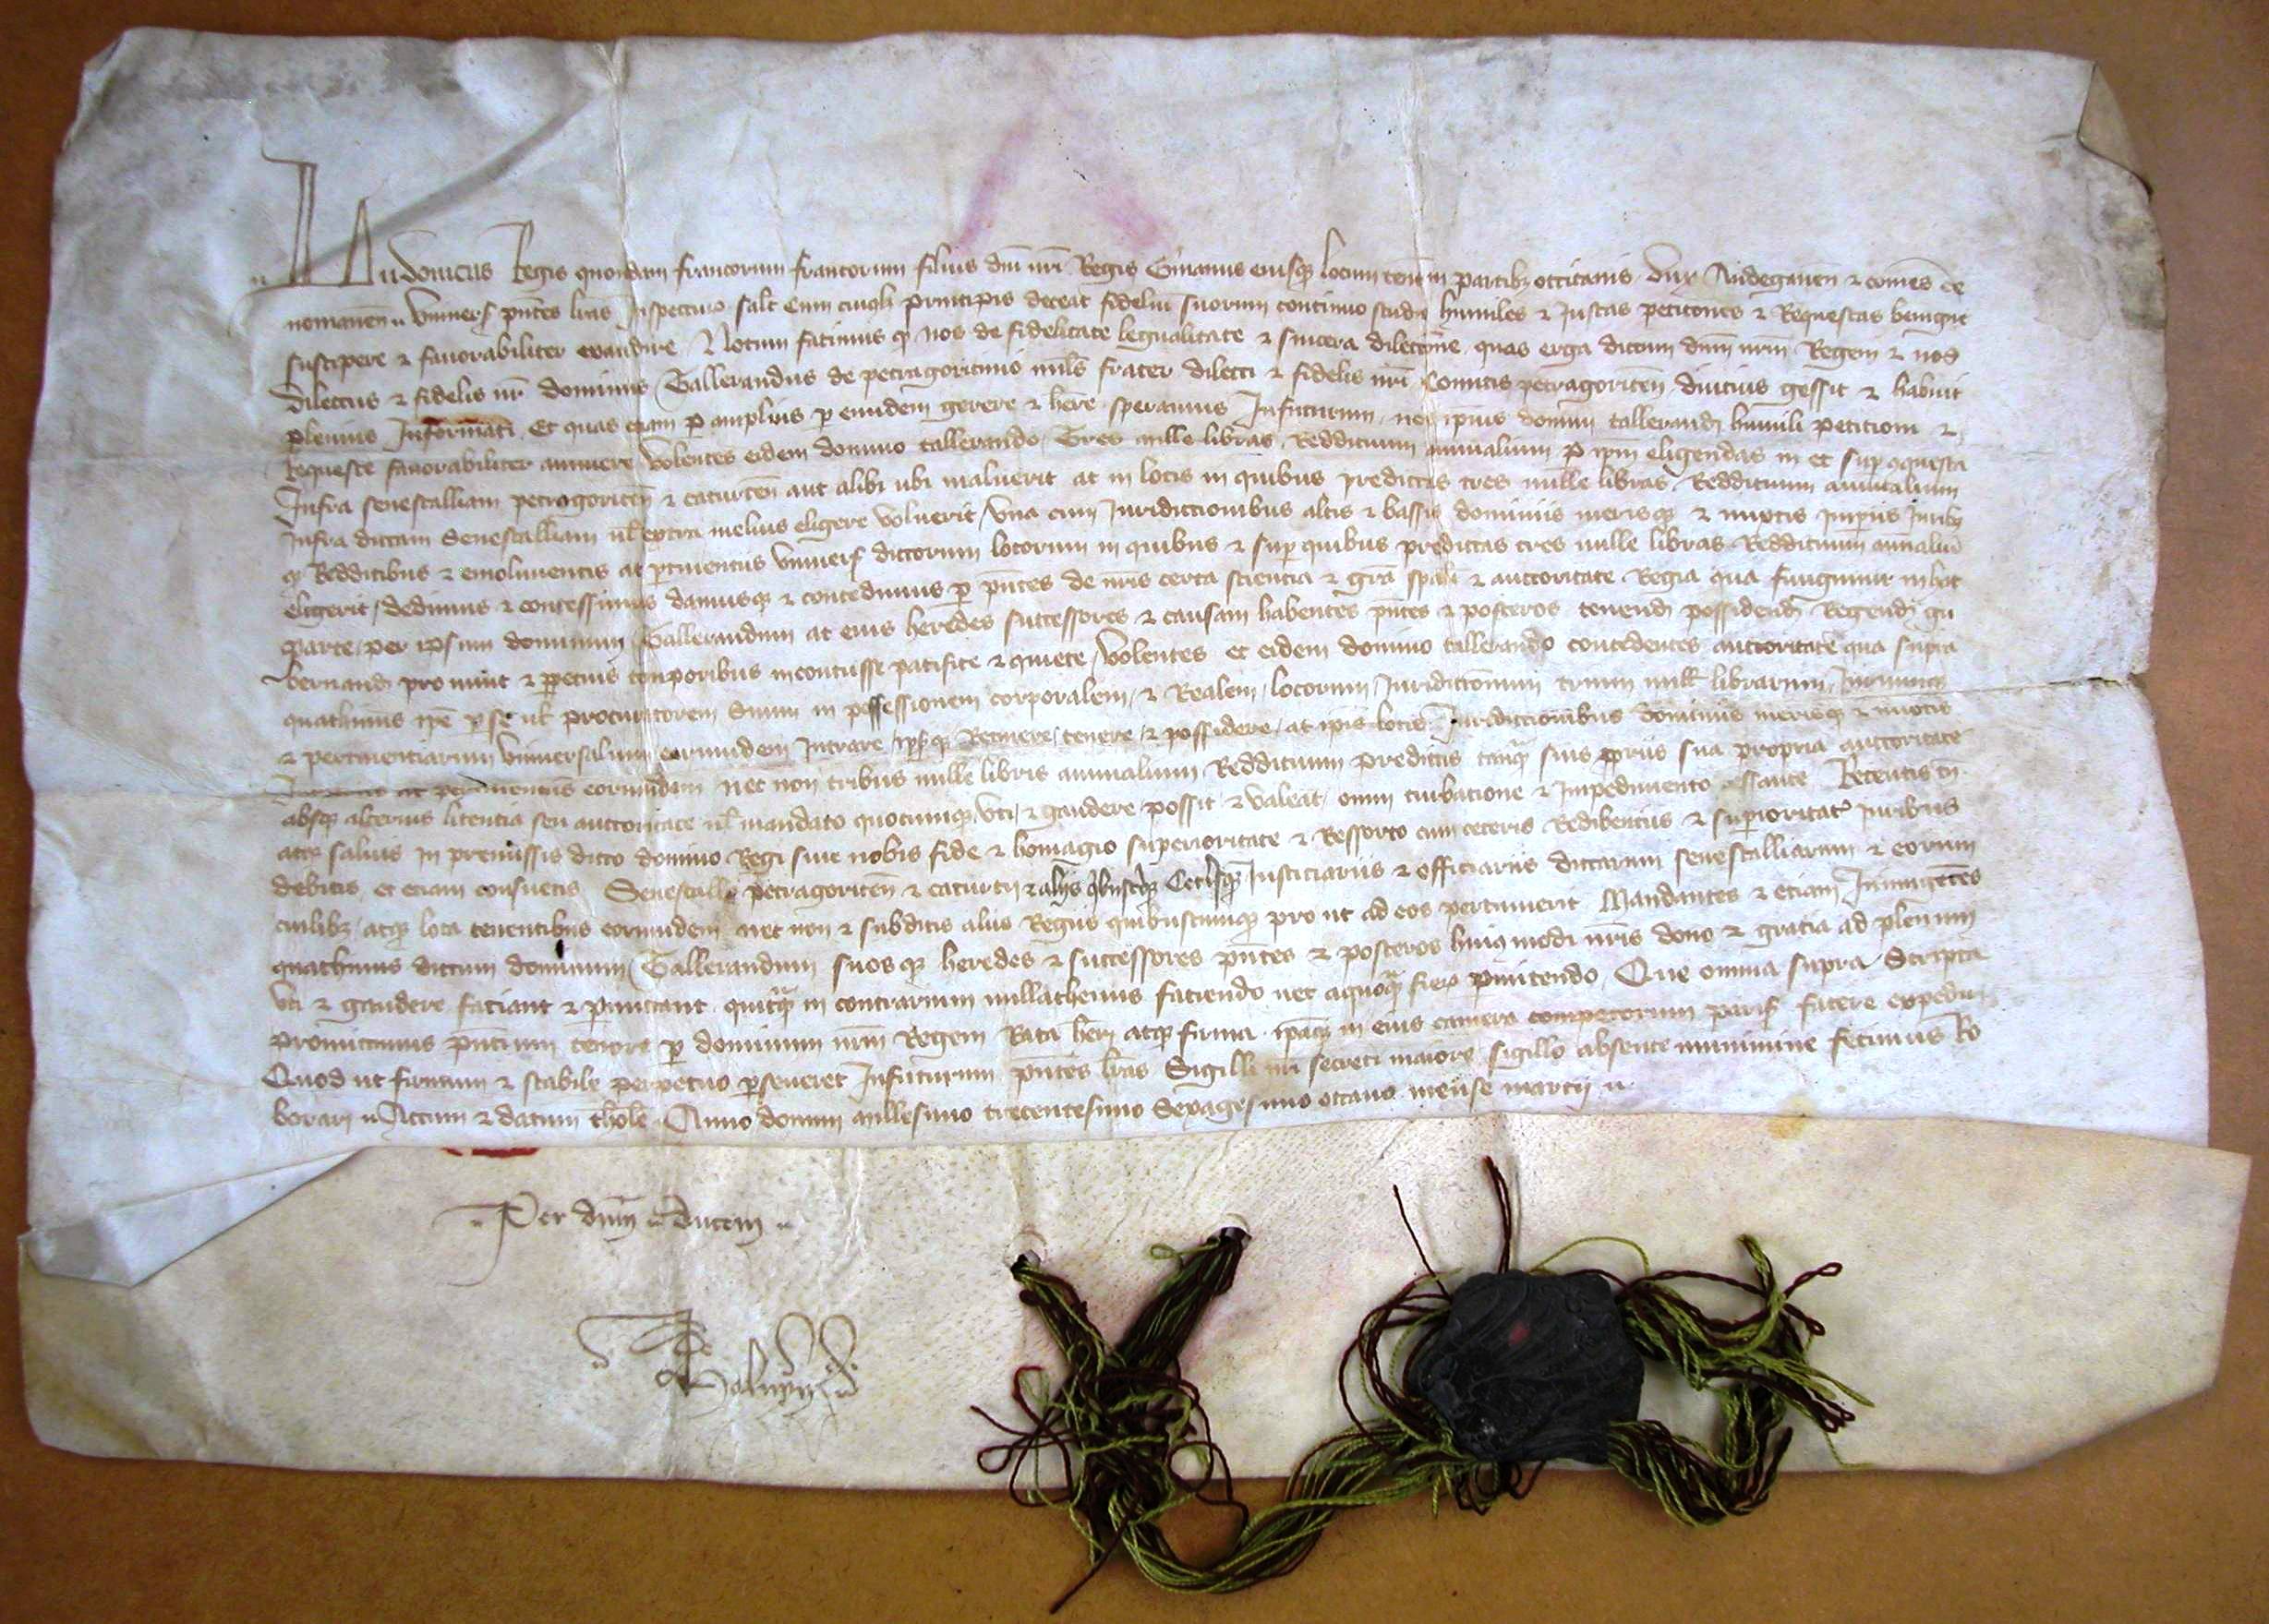 Ludovicus Regis quondam francorum francorum filius dni nri Regis Germanus eiusq locum tenens in partibz occitanis dux Andegaven & comes ce
nomanen Univers pntes lras Inspecturis salt Cum cuiqli principis deceat fidelium suorum continuo studio humiles & Justas petitiones & Requestas benigne
suscipere & favorabiliter exaudire Notum facimus q nos de fidelitate legualitate & sincera dilectione quas erga dictum dnm nrm Regem & nos
dilectus & fidelis nr dominus Tallerandus de petragoricinio mils frater dilecti & fidelis nri Comitis petragoricen divicius gessit & habuit
plenius Informati Et quas etiam p amplius p eumdem gerere & here speramus Infuturum nos ipius domini tallerandi humili petitioni &
Requeste favorabiliter annuere Volentes eidem domino tallerando Tres mille libras Reddituum annualium p ipm eligendas in et sup conquesta
Infra senescalliam petragoricen & caturcen aut alibi ubi maluerit ac in locis in quibus predictas tres mille libras Reddituum annualium
Infra dictam Senescalliam vl extra melius eligere voluerit Una cum Juridictionibus altis & bassis dominiis merisq & mixtis Imperiis Juribz
q Redditibus & emolumentis ac pertinentiis univers dictorum locorum in quibus & sup quibus predictas tres mille libras Reddituum annualiu
eligerit dedimus & concessimus damusq & concedimus p pntes de nris certa sciencia & gra spali & auctoritate Regia qua fungimur in hac
parte per ipsum dominum Tallerandum ac eius heredes successores & causam habentes pntes & posteros tenend possidend Regend gu
bernand pro nunc & ppetuis temporibus inconcusse pacifice & quiete Volentes et eidem domino tallerando concedentes auctoritate qua supra
quathinus ipe p se vl procuratorem Suum in possessionem corporalem & Realem locorum Juridictionum trium mill librarum Jurium
& pertinentiarum universalium eorumdem Intrare ipsq Retinere tenere & possidere ac ipis locis Juridictionibus dominiis merisq & mixtis
Imperiis ac pertinentiis eorumdem nec non tribus mille libris annualium Reddituum predictis tanq suis ppriis sua propria auctoritate
absq alterius licencia seu auctoritate vl mandato quocumq Uti & gaudere possit & valeat omni turbatione & Impedimento cessante Retentis tn
atq salvis In premissis dicto domino Regi sive nobis fide & homagio superioritate & Ressorto cum ceteris Redibentiis & superioritatis Juribus
debitis et etiam consuetis Senescallo petragoricen & caturcii & aliis qbuscuq Justiciariis & officiariis dictarum senescalliarum & eorum
cuilibz atq loca tenentibus eorumdem nec non & subditis aliis Regiis quibuscumq pro ut ad eos pertinuerit Mandantes & etiam Iniungentes
quathinus dictum dominum Tallerandum suos q heredes & successores pntes & posteros huiq modi nris dono & gratia ad plenum
Uti & gaudere faciant & pmittant quicq in contrarium nullathenus faciendo nec aquoq fieri pmittendo Que omnia supra Scripta
promittimus pntium tenore p dominum nrm Regem Rata heri atq firma ipaq in eius camera compotorum paris facere expediri
Quod ut firmum & stabile perpetuo pseveret Infuturum pntes lras Sigilli nri secreti maiore sigillo absente munimine fecimus Ro
borari Actum & datum thole Anno domini millesimo trecentesimo Sexagesimo octavo mense marcii
Per dnm ducem